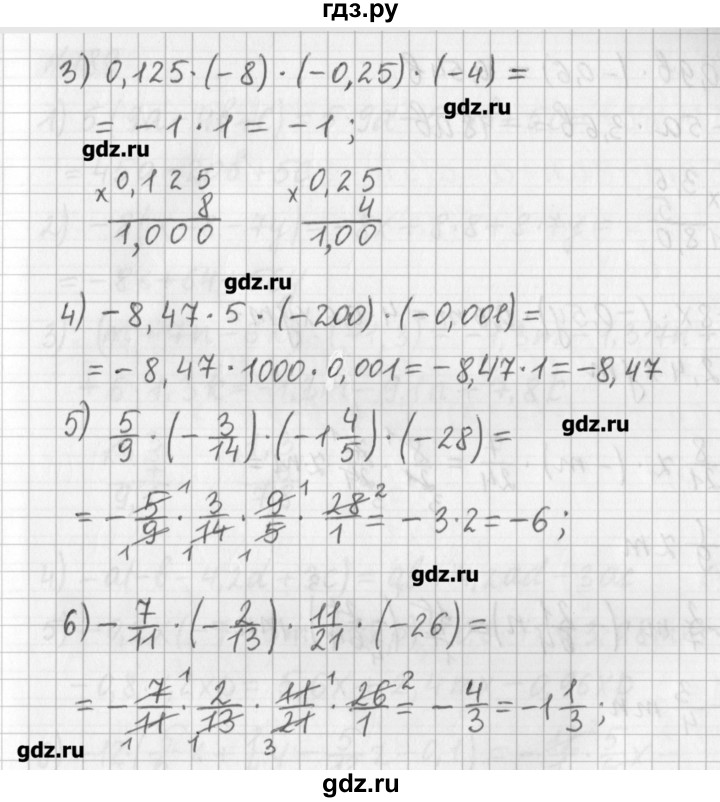 гдз.ру
3) 0,125 · (-8) · (-0,25) · (-4) =
gdz.ru
= -1 · 1 = -1;
gdz.ru
× 0,125 × 0,25
8 4
1,000 1,00
gdz.ru
4) -8,47 · 5 · (-200) · (-0,001) =
= -8,47 · 1000 · 0,001 = -8,47 · 1 = -8,47
5) 5/9 · (-3/14) · (-1 4/5) · (-28) =
gdz.ru
= -5/9 · 3/14 · 9/5 · 28/1 = -3 · 2 = -6;
gdz.ru
6) -7/11 · (-2/13) · 11/21 · (-26) =
= -7/11 · 2/13 · 11/21 · 26/1 = -4/3 = -1 1/3;
gdz.ru
gdz.ru